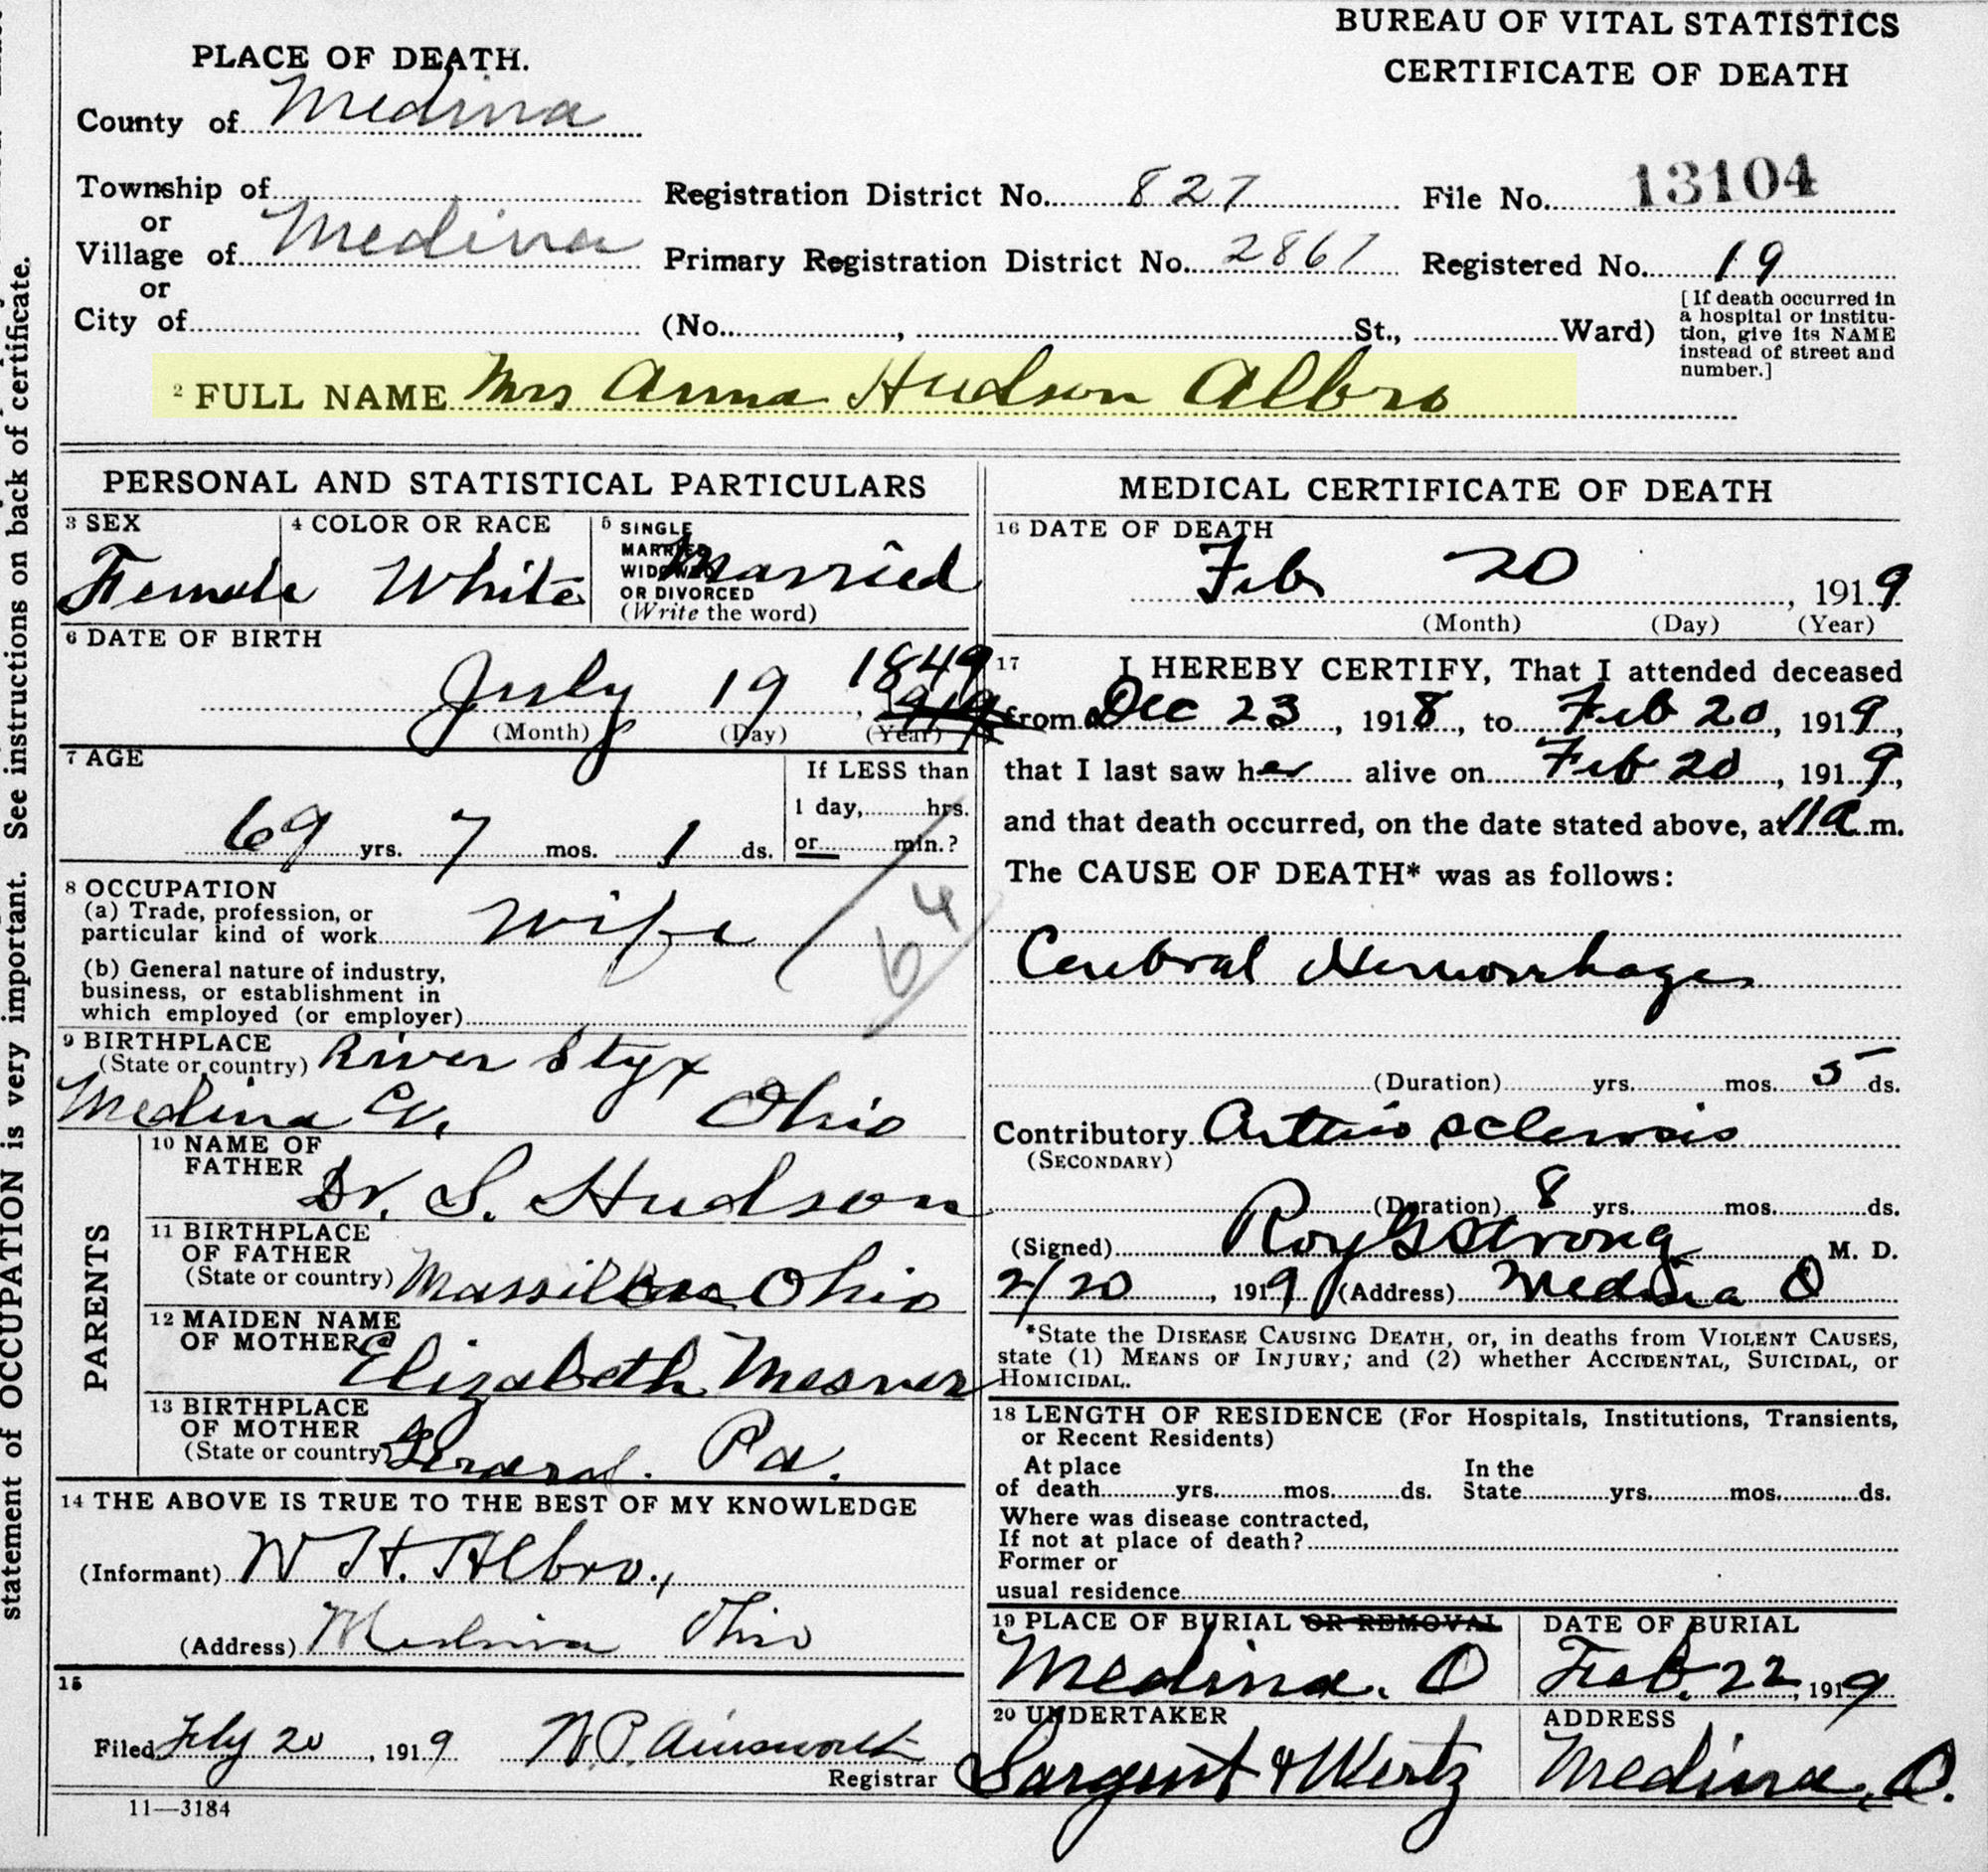 BUREAU OF VITAL STATISTICS
CERTIFICATE OF DEATH
PLACE OF DEATH.
County of Medina
Township of
or
Village of Medina
or
City of
Registration District No. 827
File No. 13104
Primary Registration District No. 2867
Registered No. 19
(No. , St., Ward)
[If death occurred in
a hospital or institu-
tion, give its NAME
instead of street and
number.]
2 FULL NAME Mrs Anna Hudson Albro
PERSONAL AND STATISTICAL PARTICULARS
3 SEX
Female
4 COLOR OR RACE
White
5 SINGLE
MARRIED
WIDOWED
OR DIVORCED
(Write the word)
Married
6 DATE OF BIRTH
July 19 1849
(Month) (Day) (Year)
7 AGE
69 yrs. 7 mos. 1 ds.
If LESS than
1 day, hrs.
or min.?
64
8 OCCUPATION
(a) Trade, profession, or
particular kind of work Wife
(b) General nature of industry,
business, or establishment in
which employed (or employer)
9 BIRTHPLACE
(State or country) River Styx
Medina Co. Ohio
PARENTS
10 NAME OF
FATHER
Dr. S. Hudson
11 BIRTHPLACE
OF FATHER
(State or country) Massillon Ohio
12 MAIDEN NAME
OF MOTHER
Elizabeth Mesner
13 BIRTHPLACE
OF MOTHER
(State or country) Pa.
14 THE ABOVE IS TRUE TO THE BEST OF MY KNOWLEDGE
(Informant) W H. Albro.,
(Address) Medina Ohio
15
Filed Feby 20, 1919 N.P. Ainsworth
Registrar
11—3184
MEDICAL CERTIFICATE OF DEATH
16 DATE OF DEATH
Feb 20, 1919
(Month) (Day) (Year)
17 I HEREBY CERTIFY, That I attended deceased
from Dec 23, 1918, to Feb 20, 1919,
that I last saw her alive on Feb 20, 1919,
and that death occurred, on the date stated above, at 11 a m.
The CAUSE OF DEATH* was as follows:
Cerebral Hemorrhage
(Duration) yrs. mos. 5 ds.
Contributory Arterio sclerosis
(SECONDARY)
(Duration) 8 yrs. mos. ds.
(Signed) Roy G Strong M. D.
2/20, 1919 (Address) Medina O
*State the DISEASE CAUSING DEATH, or, in deaths from VIOLENT CAUSES,
state (1) MEANS OF INJURY; and (2) whether ACCIDENTAL, SUICIDAL, or
HOMICIDAL.
18 LENGTH OF RESIDENCE (For Hospitals, Institutions, Transients,
or Recent Residents)
At place
of death yrs. mos. ds.
In the
State yrs. mos. ds.
Where was disease contracted,
If not at place of death?
Former or
usual residence
19 PLACE OF BURIAL OR REMOVAL
Medina. O
DATE OF BURIAL
Feb. 22, 1919
20 UNDERTAKER
Sargent & Wertz
ADDRESS
Medina, O.
statement of OCCUPATION is very important. See instructions on back of certificate.